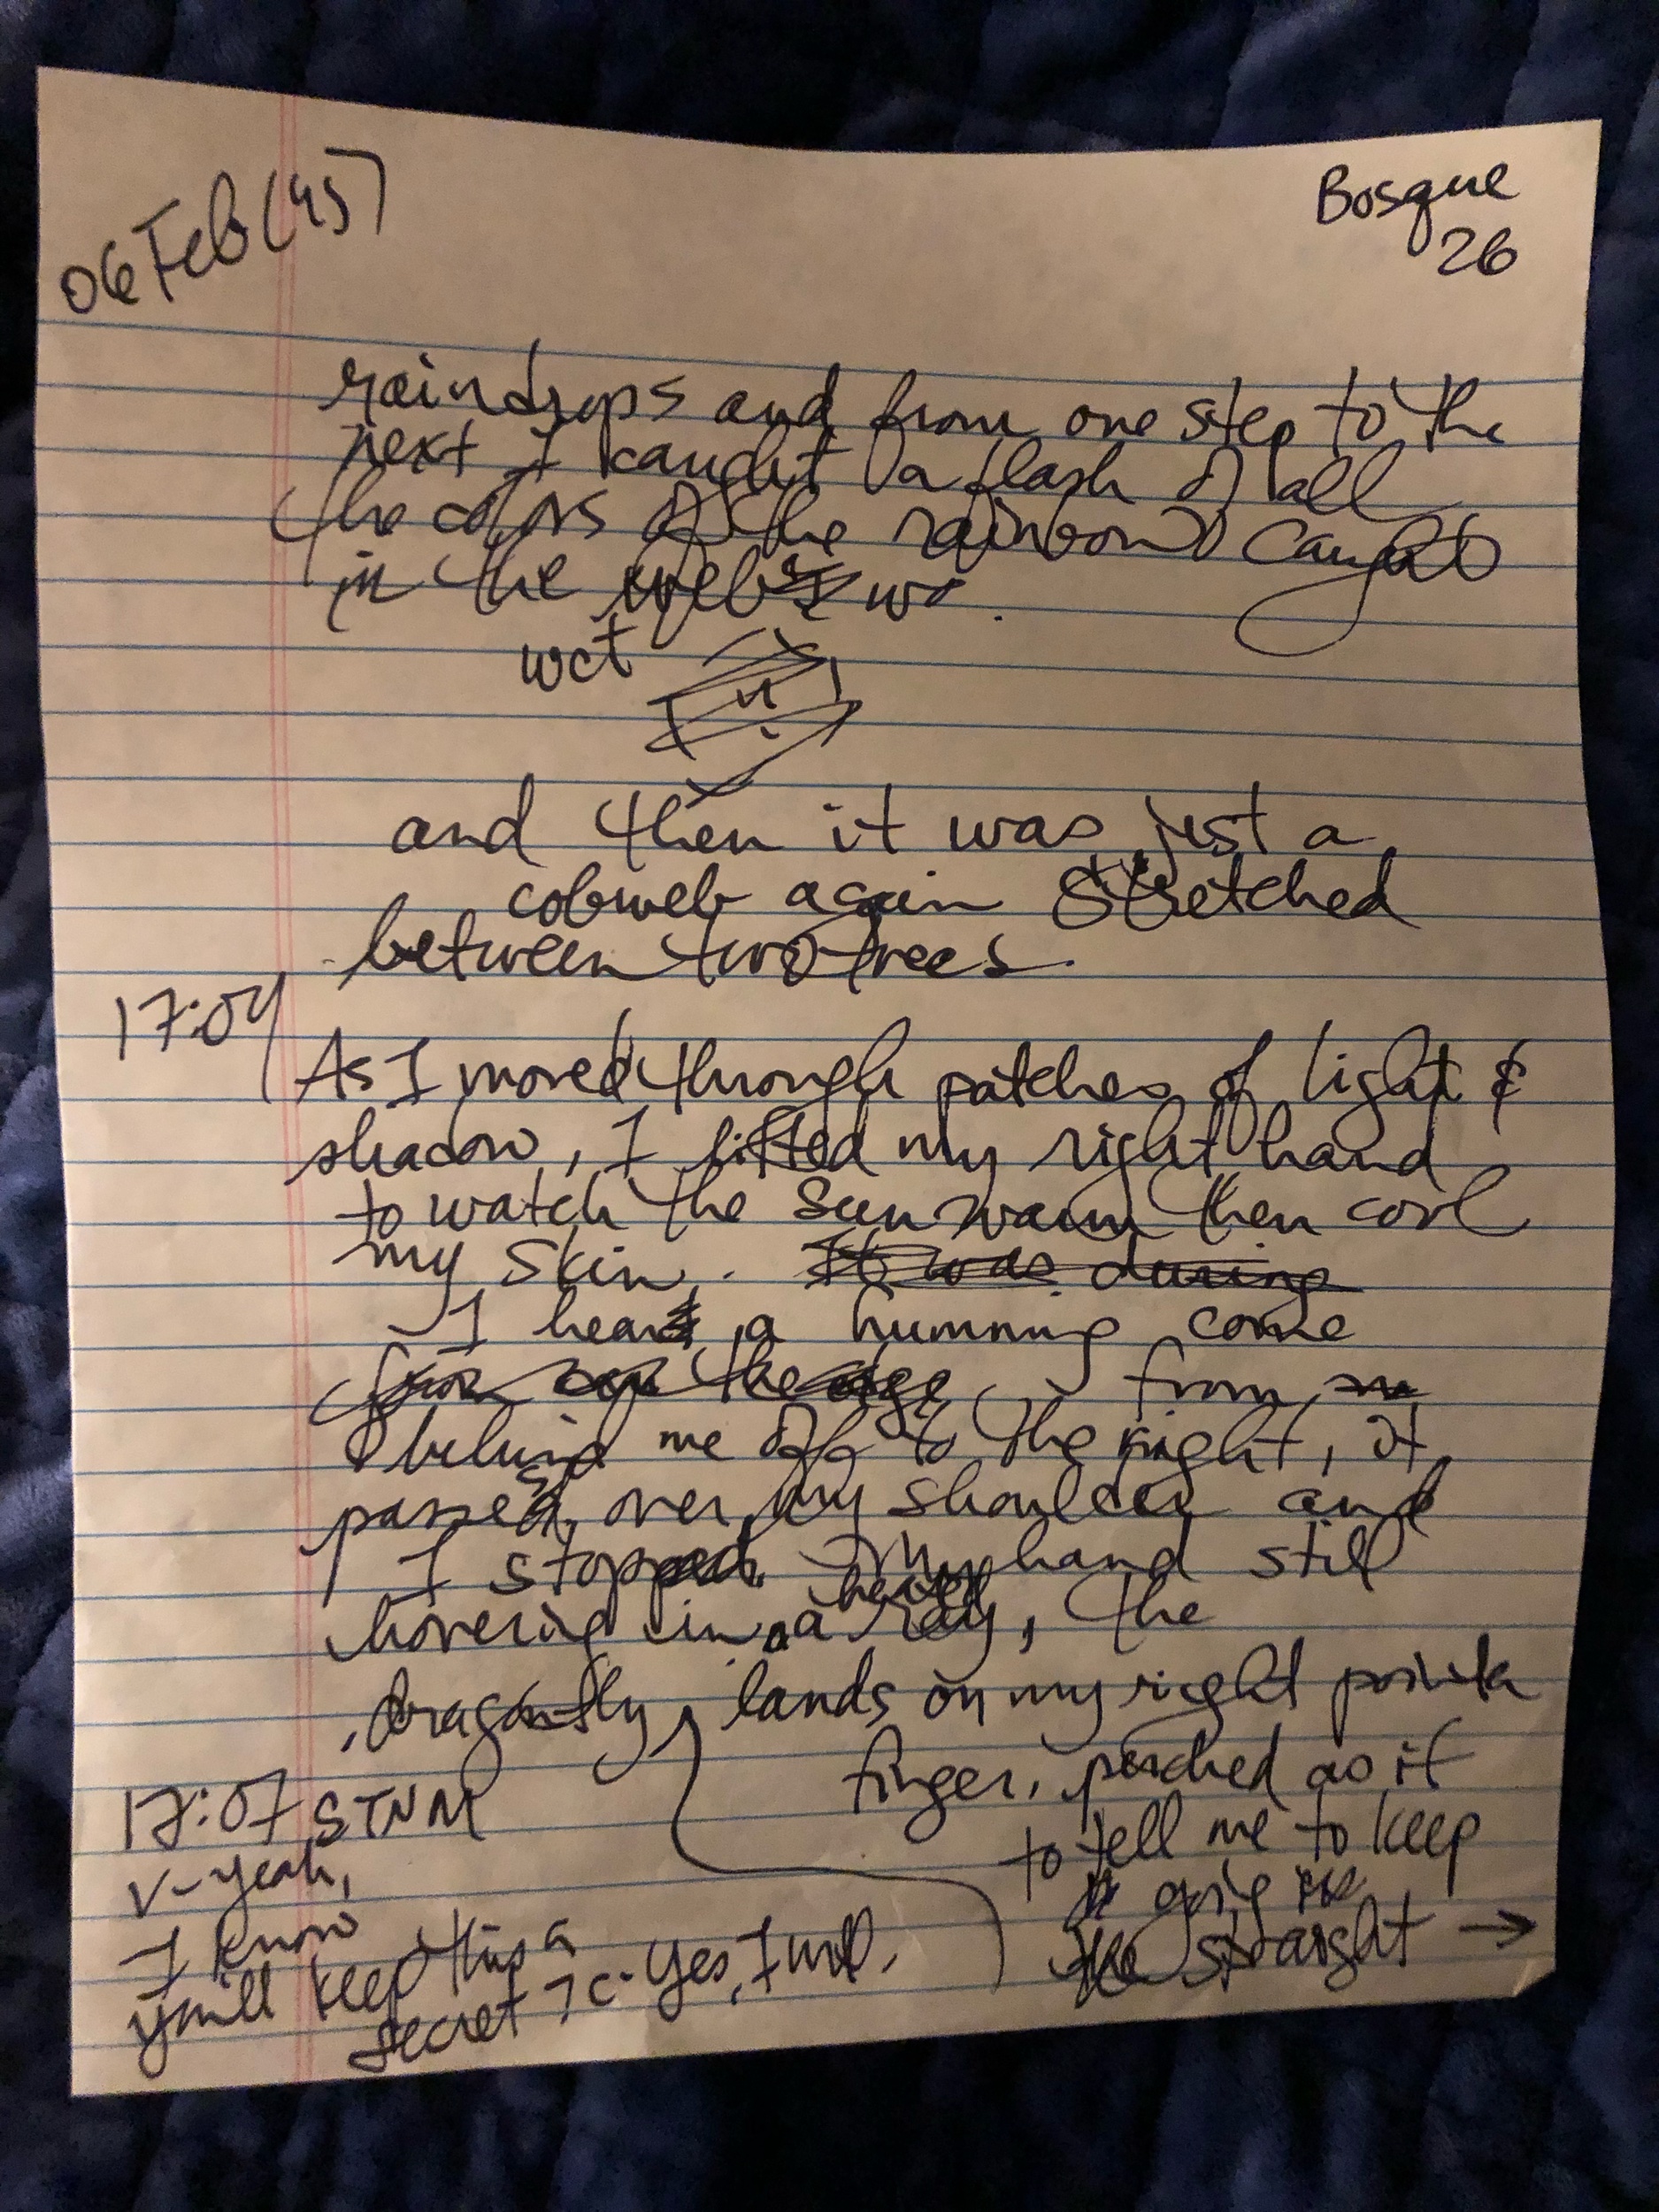 06 Feb (45)
Bosque
26
raindrops and from one step to the
next I caught a flash of all
the colors of the rainbow caught
in the web
wet
and then it was just a
cobweb again stretched
between two trees.
17:04
As I moved through patches of light &
shadow, I lifted my right hand
to watch the sun warm then cool
my skin. It was during
I heard a humming come
the edge from
behind me off to the right, it
passed over my shoulder and
I stopped my hand still
hovering in a ray, the
dragonfly, lands on my right
finger, perched as if
to tell me to keep
going
straight →
17:07 STNM
V- Yeah,
I know
you'll keep this a
secret 7 C- Yes, I will.